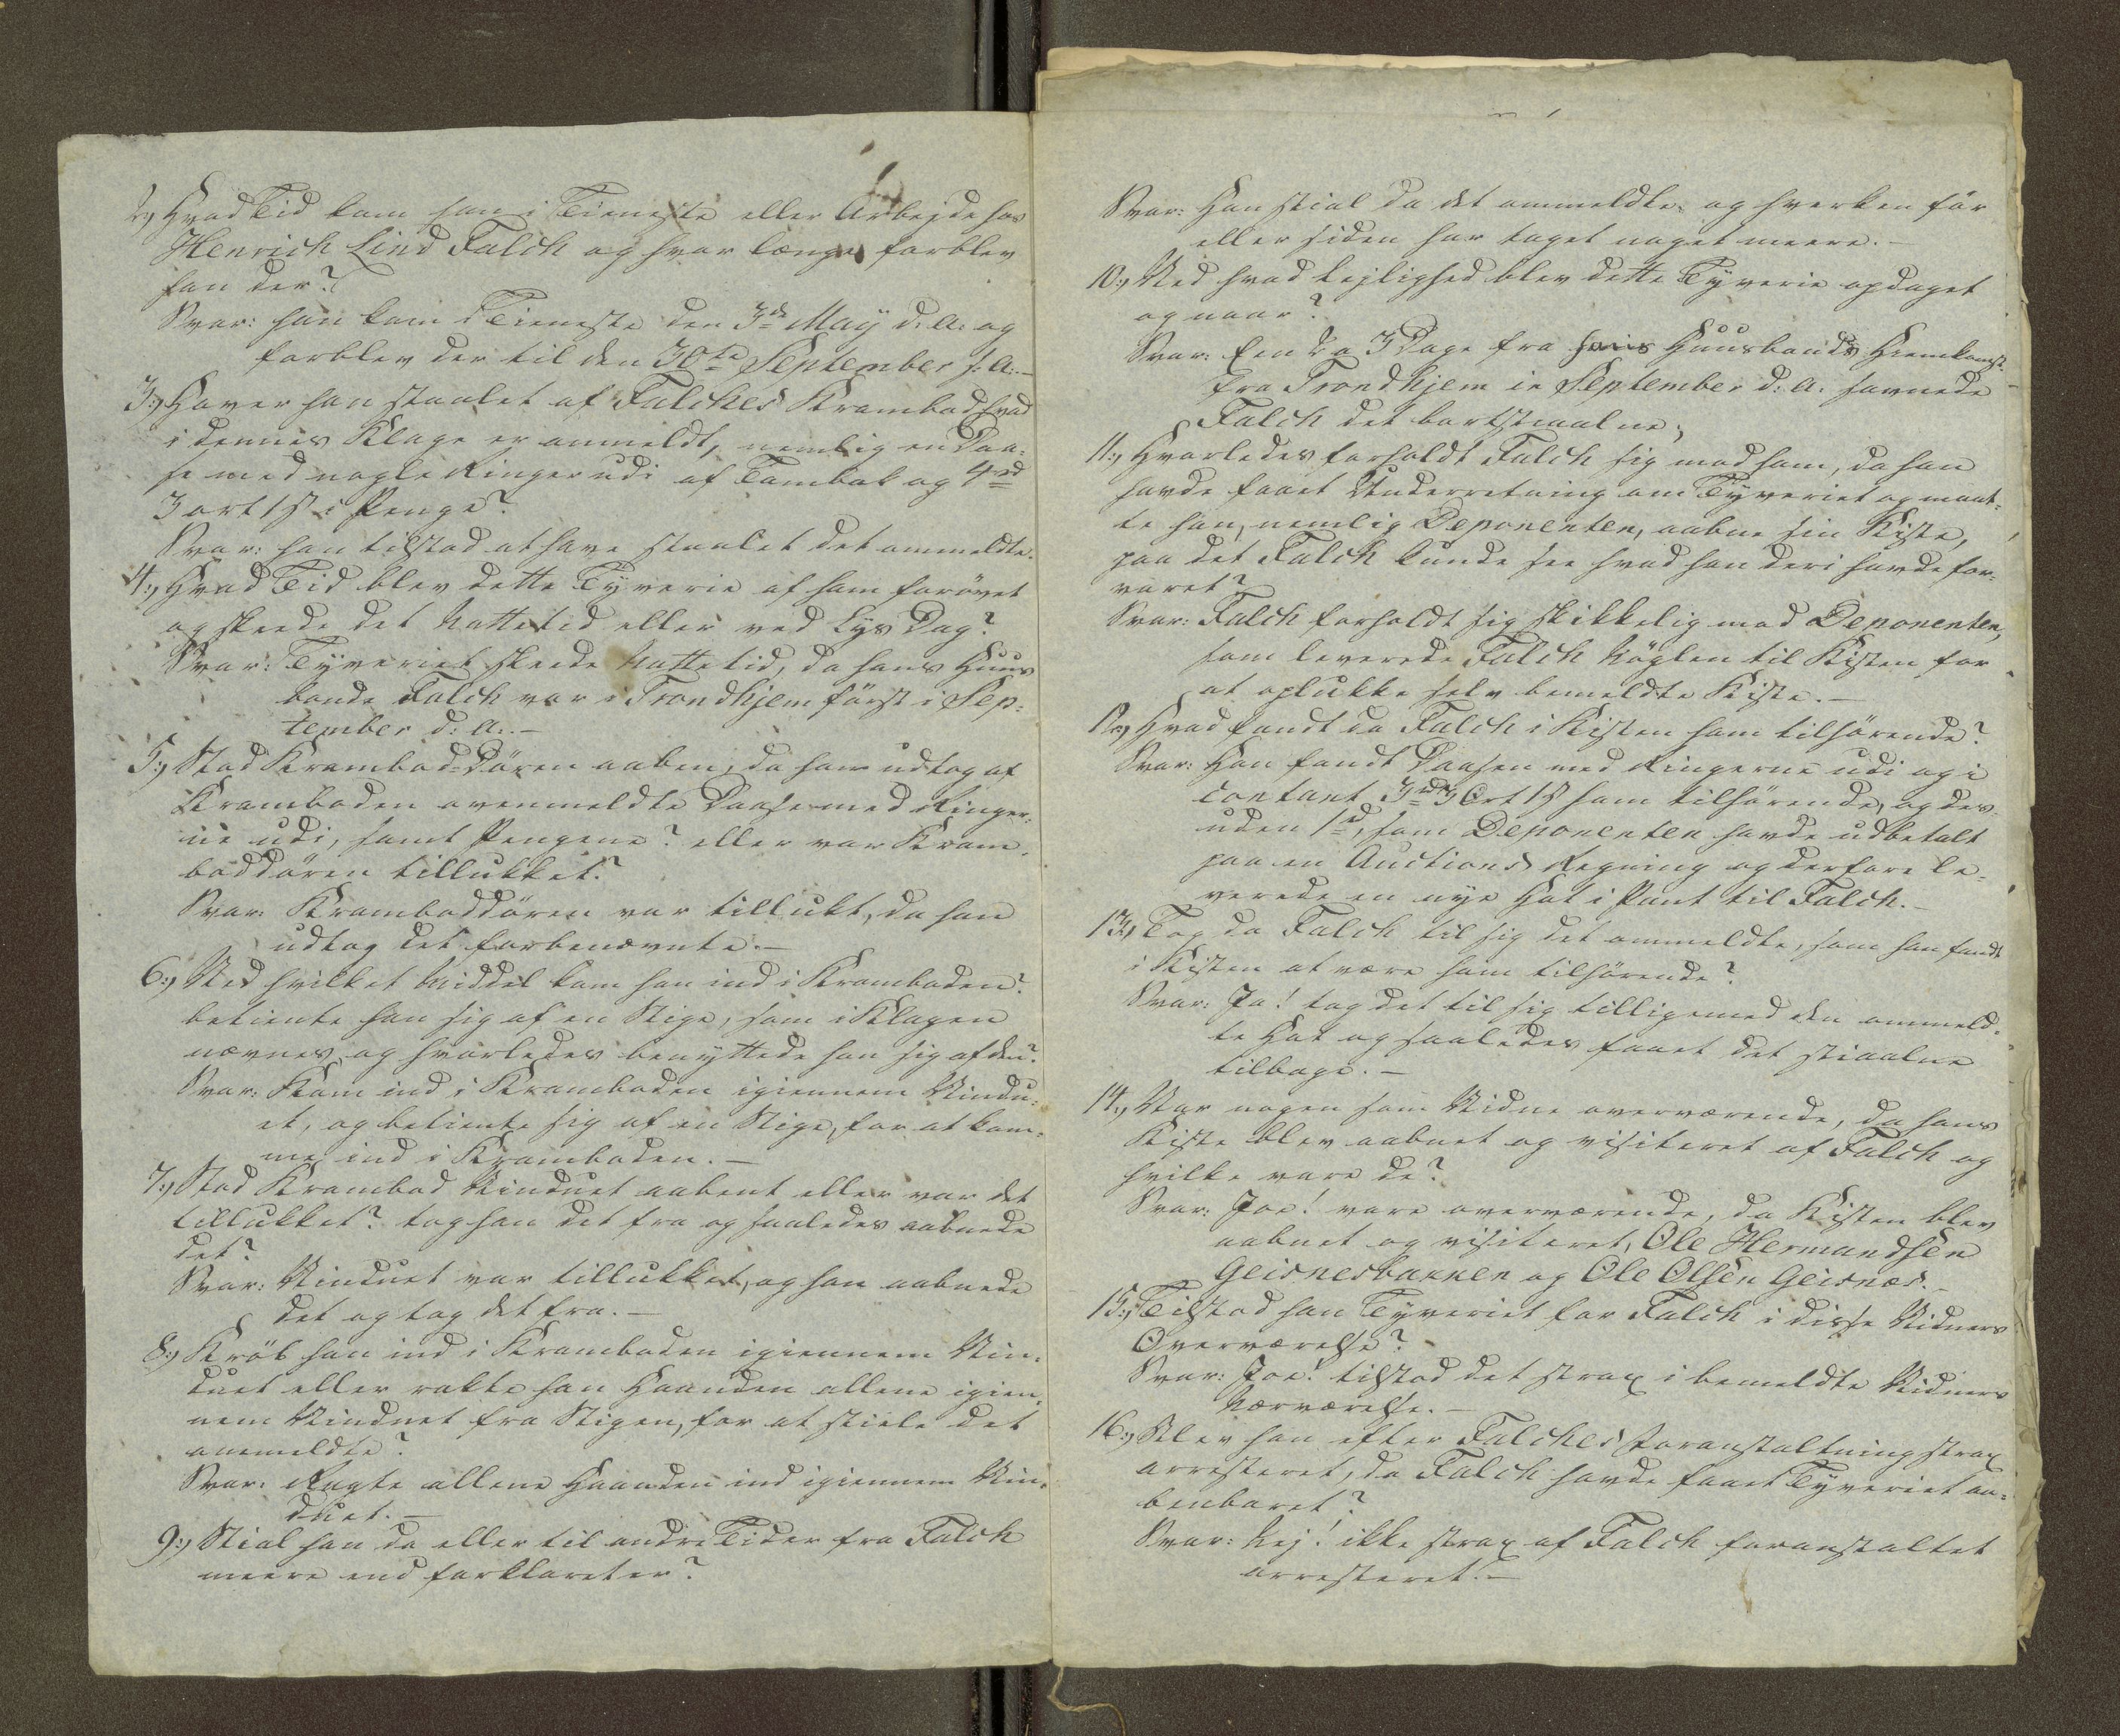 2, Hvad Tid kom han i Tieneste eller Arbejde hos
Henrich Lind Falch og hvor længe forblev
han der?
Svar: han kom i Tieneste den 3de Maÿ d: A: og
forblev der til den 30te September s: A:-
3:, Haver han staalet af Falches Krambod hvad
i dennes Klage er anmeldt, nemlig en Daa-
se med nogle Ringer udi af Tombak og 4rd
3 ort 1 s i Penge?
Svar: han tilstod at have staalet det ommeldte.
4:, Hvad Tid blev dette Tÿverie af ham forövet
og skeede det Nattetid eller ved Lÿs Dag?
Svar: Tÿveriet skeede Nattetid, da hans Huus
bonde Falch var i Trondhjem först i Sep-
tember d: A:-
5:, Stod Krambod-Dören aaben, da han udtog af
Kramboden ovenmeldte Daase med Ringer-
ne udi, samt Pengene? eller var Kram-
boddören tillukket?
Svar: Kramboddören var tillukt, da han
udtog det forbenævnte.-
6:, Ved hvilket Middel kom han ind i Kramboden?
betiente han sig af en Stige, som i Klagen
nævnes, og hvorledes benÿttede han sig af den?
Svar: Kom ind i Kramboden igiennem Vindu-
et, og betiente sig af en Stige, for at kom-
me ind i Kramboden.-
7:, Stod Krambod Vinduet aabent eller var det
tillukket? tog han det fra og saaledes aabnede
det?
Svar: Vinduet var tillukket, og han aabnede
det og tog det fra.-
8:, Kröb han ind i Kramboden igiennem Vin-
duet eller rakte han Haanden allene igien-
nem Vinduet fra Stigen, for at stiele det
ommeldte?
Svar: Ragte allene Haanden ind igiennem Vin-
duet.-
9:, Stial han da eller til andre Tider fra Falch
meere end forklaret er?
Svar: Han stial da det ommeldte og hverken för
eller siden har taget noget meere.-
10:, Ved hvad Lejlighed blev dette Tÿverie opdaget
og naar?
Svar: Een 2 a 3 Dage fra hans Huusbonds Hiemkomst
fra Trondhjem in September d: A: savnede
Falch det bortstiaalne,
11:, Hvorledes forholdt Falch sig mod ham, da han
havde faaet Underretning om Tÿveriet og maat-
te han, nemlig Deponenten, aabne sin Kiste,
paa det Falch kunde see hvad han deri havde for-
varet?
Svar: Falch forholdt sig skikkelig mod Deponenten,
som leverede Falch Nöglen til Kisten for
at oplukke selv bemeldte Kiste.-
12:, Hvad fandt da Falch i Kisten ham tilhörende?
Svar: Han fandt Daasen med Ringerne udi og i
contant 3rd 3 Ort 1 s ham tilhörende, og des-
uden 1rd, som Deponenten havde udbetalt
paa en Auctions Regning og derfore le-
verede en nÿe Hat i Pant til Falch.-
13:, Tog da Falch til sig det ommeldte, som han fandt
i Kisten at være ham tilhörende?
Svar: Ja! tog det til sig tilligemed den ommeld-
te Hat og saaledes faaet det stiaalne
tilbage.-
14:, Var nogen som Vidne overværende, da hans
Kiste blev aabnet og visiteret af Falch og
hvilke vare de?
Svar: Joe! vare overværende, da Kisten blev
aabnet og visiteret, Ole Hermandsen
Geisnesbakken og Ole Olsen Geisnæs.-
15:, Tilstod han Tÿveriet for Falch i disse Vidners
Overværelse?
Svar: Joe! tilstod det strax i bemeldte Vidners
Nærværelse.-
16:, Blev han efter Falches Foranstaltning strax
arresteret, da Falch havde faaet Tÿveriet aa-
benbaret?
Svar: Nej! ikke strax af Falch foranstaltet
arresteret.-